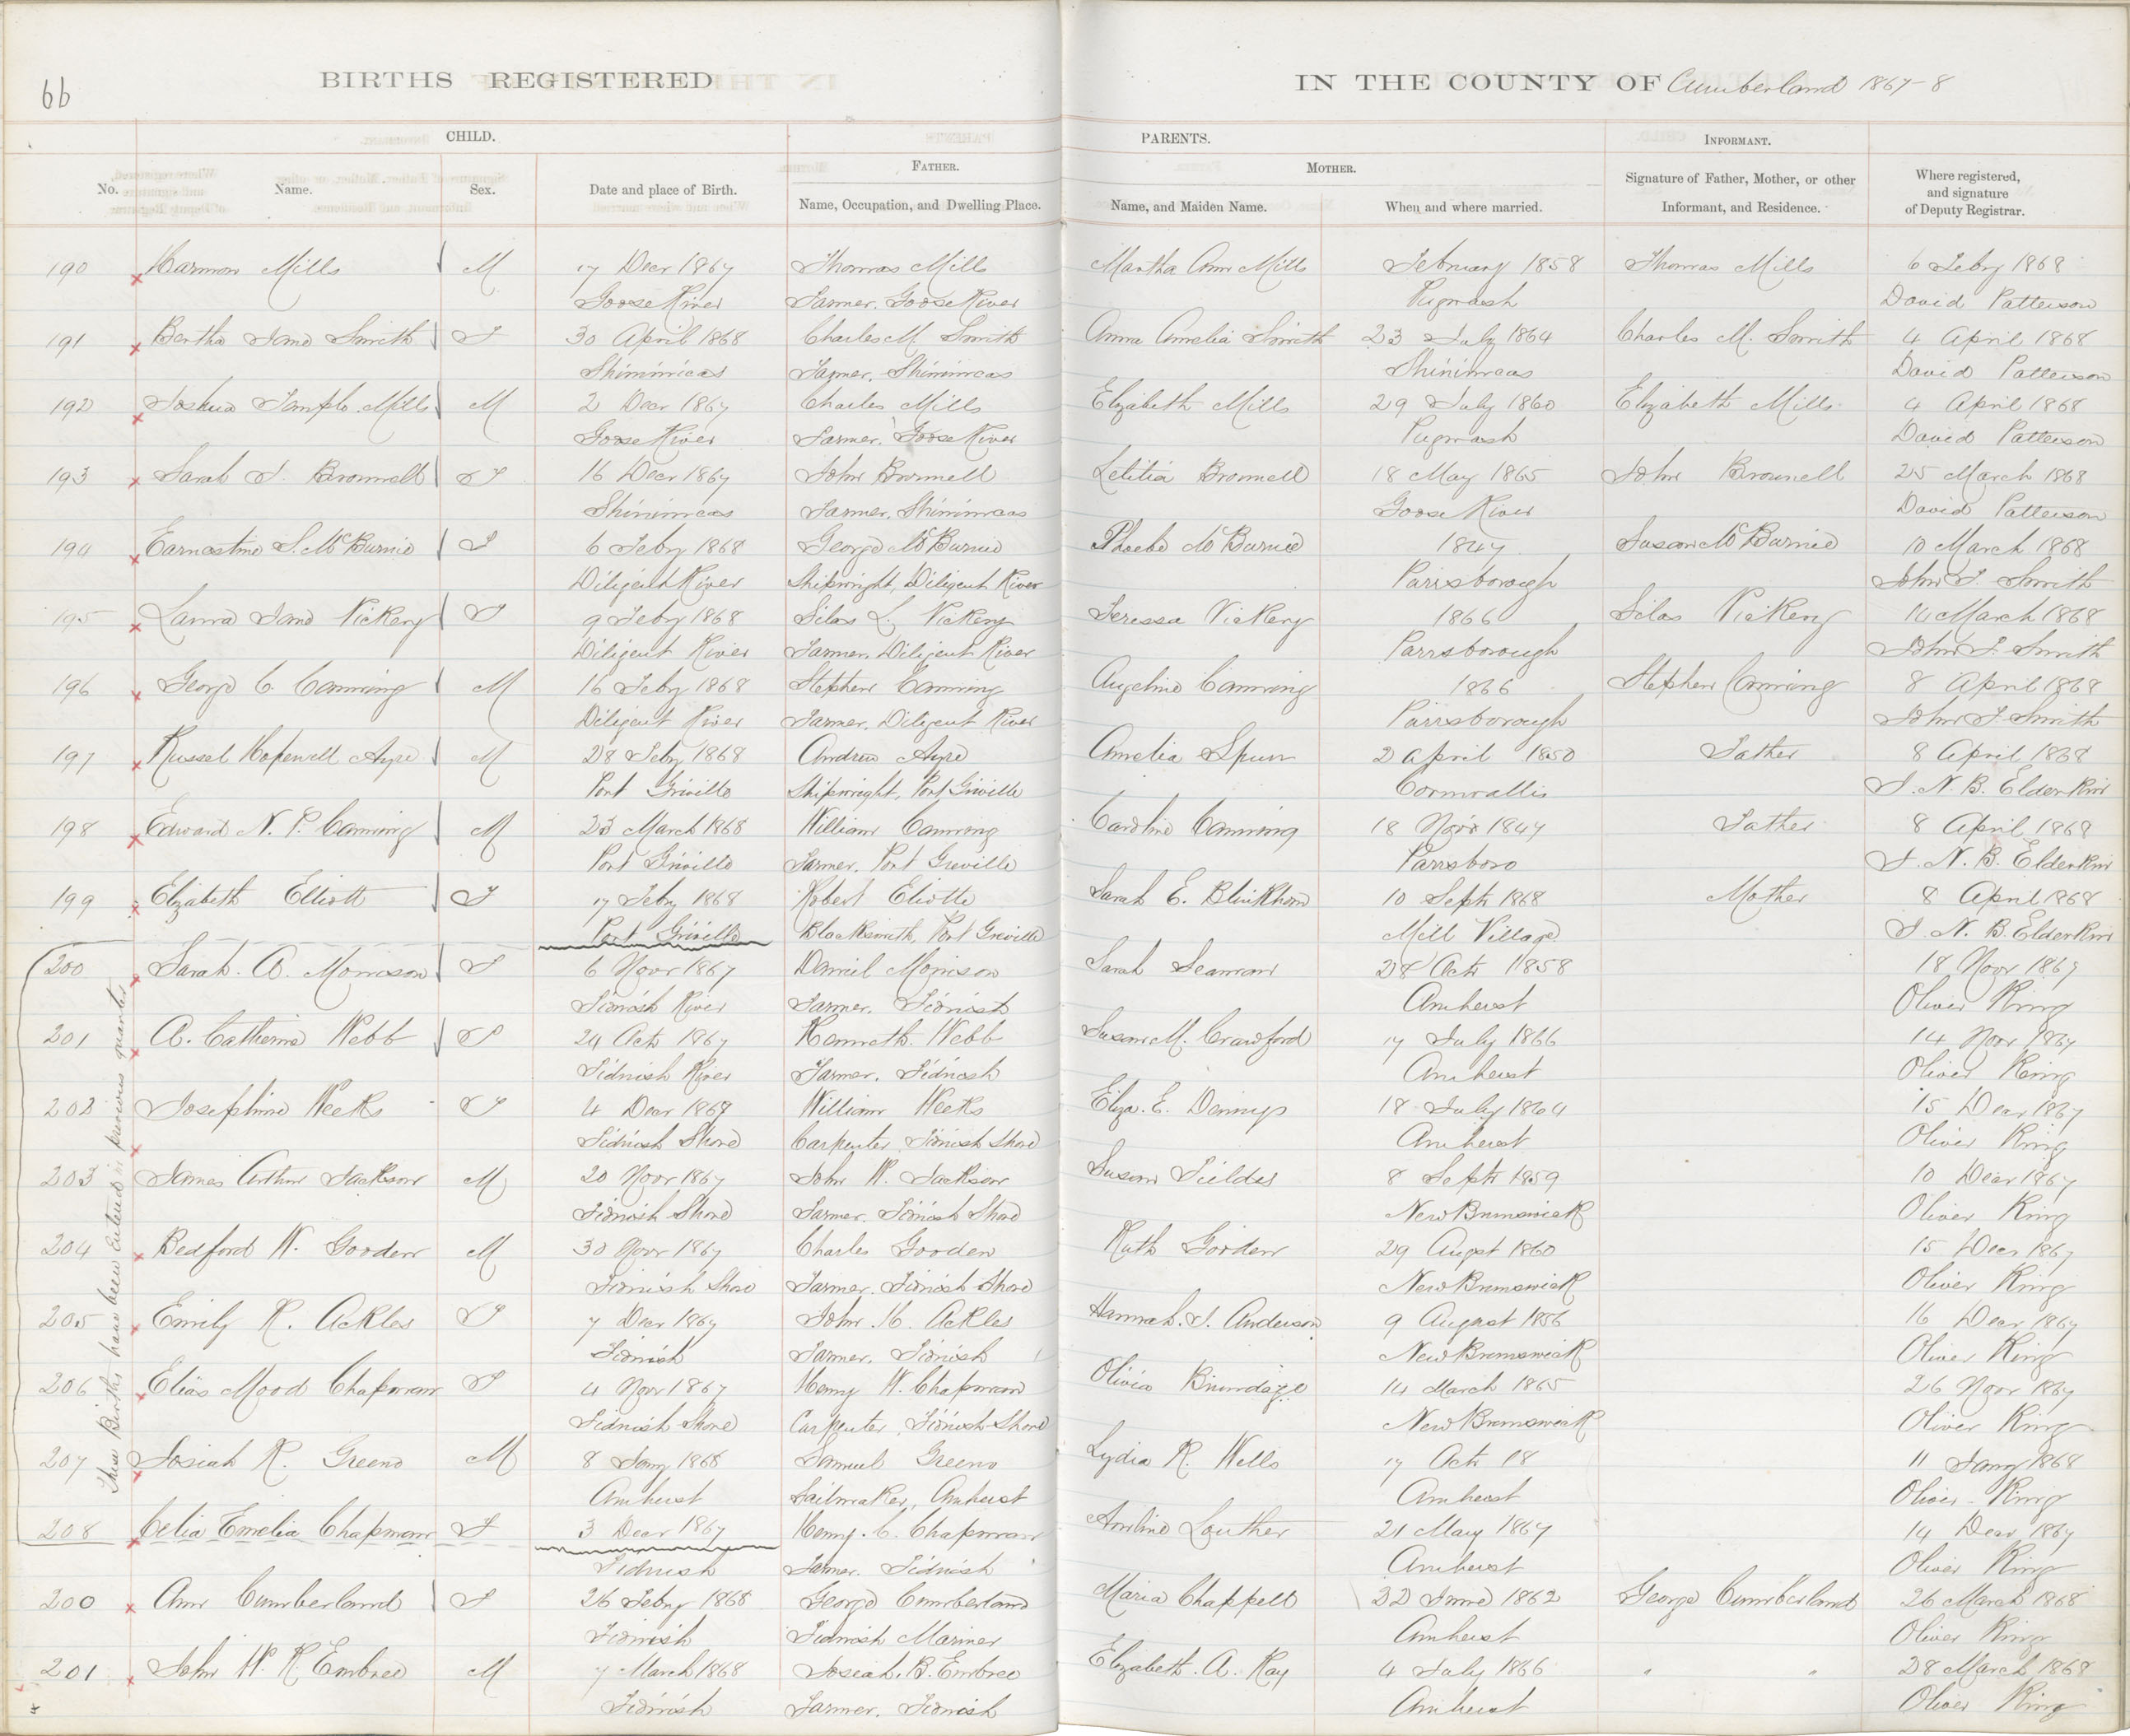 66
BIRTHS REGISTERED
IN THE COUNTY OF Cumberland 1867-8
CHILD.
PARENTS.
INFORMANT.
No.
Name.
Sex.
Date and place of Birth.
FATHER.
Name, Occupation, and Dwelling Place.
MOTHER.
Name, and Maiden Name.
When and where married.
Signature of Father, Mother, or other
Informant, and Residence.
Where registered,
and signature
of Deputy Registrar.
190 Harmon Mills M 17 Decr 1867 Thomas Mills Martha Ann Mills February 1858 Thomas Mills 6 Feby 1868
Goose River Farmer. Goose River Pugwash David Patterson
191 Bertha Jane Smith F 30 April 1868 Charles M Smith Anna Amelia Smith 23 July 1864 Charles M. Smith 4 April 1868
Shinimicas Farmer. Shinimicas Shinimicas David Patterson
192 Joshua Temple Mills M 2 Decr 1867 Charles Mills Elizabeth Mills 29 July 1860 Elizabeth Mills 4 April 1868
Goose River Farmer. Goose River Pugwash David Patterson
193 Sarah J. Brownell F 16 Decr 1867 John Brownell Letitia Brownell 18 May 1865 John Brownell 25 March 1868
Shinimicas Farmer. Shinimicas Goose River David Patterson
194 Earnestine S. McBurnie F 6 Feby 1868 George McBurnie Phoebe McBurnie 1847 Susan McBurnie 10 March 1868
Diligent River Shipwright, Diligent River Parrsborough John T. Smith
195 Laura Jane Vickery F 9 Feby 1868 Silas L. Vickery Teressa Vickery 1866 Silas Vickery 14 March 1868
Diligent River Farmer. Diligent River Parrsborough John T. Smith
196 George C. Canning M 16 Feby 1868 Stephen Canning Angeline Canning 1866 Stephen Canning 8 April 1868
Diligent River Farmer. Diligent River Parrsborough John T. Smith
197 Russel Hopewell Ayre M 28 Feby 1868 Andrew Ayre Amelia Spurr 2 April 1850 Father 8 April 1868
Port Griville Shipwright, Port Griville Cornwallis J. N. B. Elderkin
198 Edward N. P. Canning M 23 March 1868 William Canning Caroline Canning 18 Novr 1847 Father 8 April 1868
Port Griville Farmer. Port Greville Parrsboro J. N. B. Elderkin
199 Elizabeth Elliott F 17 Feby 1868 Robert Eliotte Sarah E. Blinkhorn 10 Septr 1868 Mother 8 April 1868
Port Griville Blacksmith, Port Greville Mill Village J. N. B. Elderkin
These Births have been entered in previous quarter
200 Sarah. A. Morrison F 6 Novr 1867 Daniel Morrison Sarah Seaman 28 Octr 1858 18 Novr 1867
Tidnish River Farmer. Tidnish Amherst Oliver King
201 A. Catherine Webb F 24 Octr 1867 Kenneth. Webb Susan M. Crawford 17 July 1866 14 Novr 1867
Tidnish River Farmer. Tidnish Amherst Oliver King
202 Josephine Weeks F 4 Decr 1867 William Weeks Eliza. E. Dennys 18 July 1864 15 Decr 1867
Tidnish Shore Carpenter Tidnish Shore Amherst Oliver King
203 James Arthur Jackson M 20 Novr 1867 John W. Jackson Susan Fields 8 Septr 1859 10 Decr 1867
Tidnish Shore Farmer. Tidnish Shore New Brunswick Oliver King
204 Bedford W. Gooden M 30 Novr 1867 Charles Gooden Ruth Gooden 29 Augst 1860 15 Decr 1867
Tidnish Shore Farmer. Tidnish Shore New Brunswick Oliver King
205 Emily R. Ackles F 7 Decr 1867 John. H. Ackles Hannah. J. Anderson 9 August 1856 16 Decr 1867
Tidnish Farmer. Tidnish New Brunswick Oliver King
206 Elias Mood Chapman F 4 Novr 1867 Henry W. Chapman Olivia Brundage 14 March 1865 26 Novr 1867
Tidnish Shore Carpenter, Tidnish Shore New Brunswick Oliver King
207 Josiah R. Greeno M 8 Jany 1868 Samuel Greeno Lydia R. Wells 17 Octr 18 11 Jany 1868
Amherst Sailmaker, Amherst Amherst Oliver King
208 Celia Emelia Chapman F 3 Decr 1867 Henry. C. Chapman Louther 21 May 1867 14 Decr 1867
Tidnish Farmer. Tidnish Amherst Oliver King
200 Ann Cumberland F 26 Feby 1868 George Cumberland Maria Chappell 22 June 1862 George Cumberland 26 March 1868
Tidnish Tidnish Mariner Amherst Oliver King
201 John W. R. Embree M 7 March 1868 Josiah. B. Embree Elizabeth. A. Ray 4 July 1866 " " 28 March 1868
Tidnish Farmer. Tidnish Amherst Oliver King